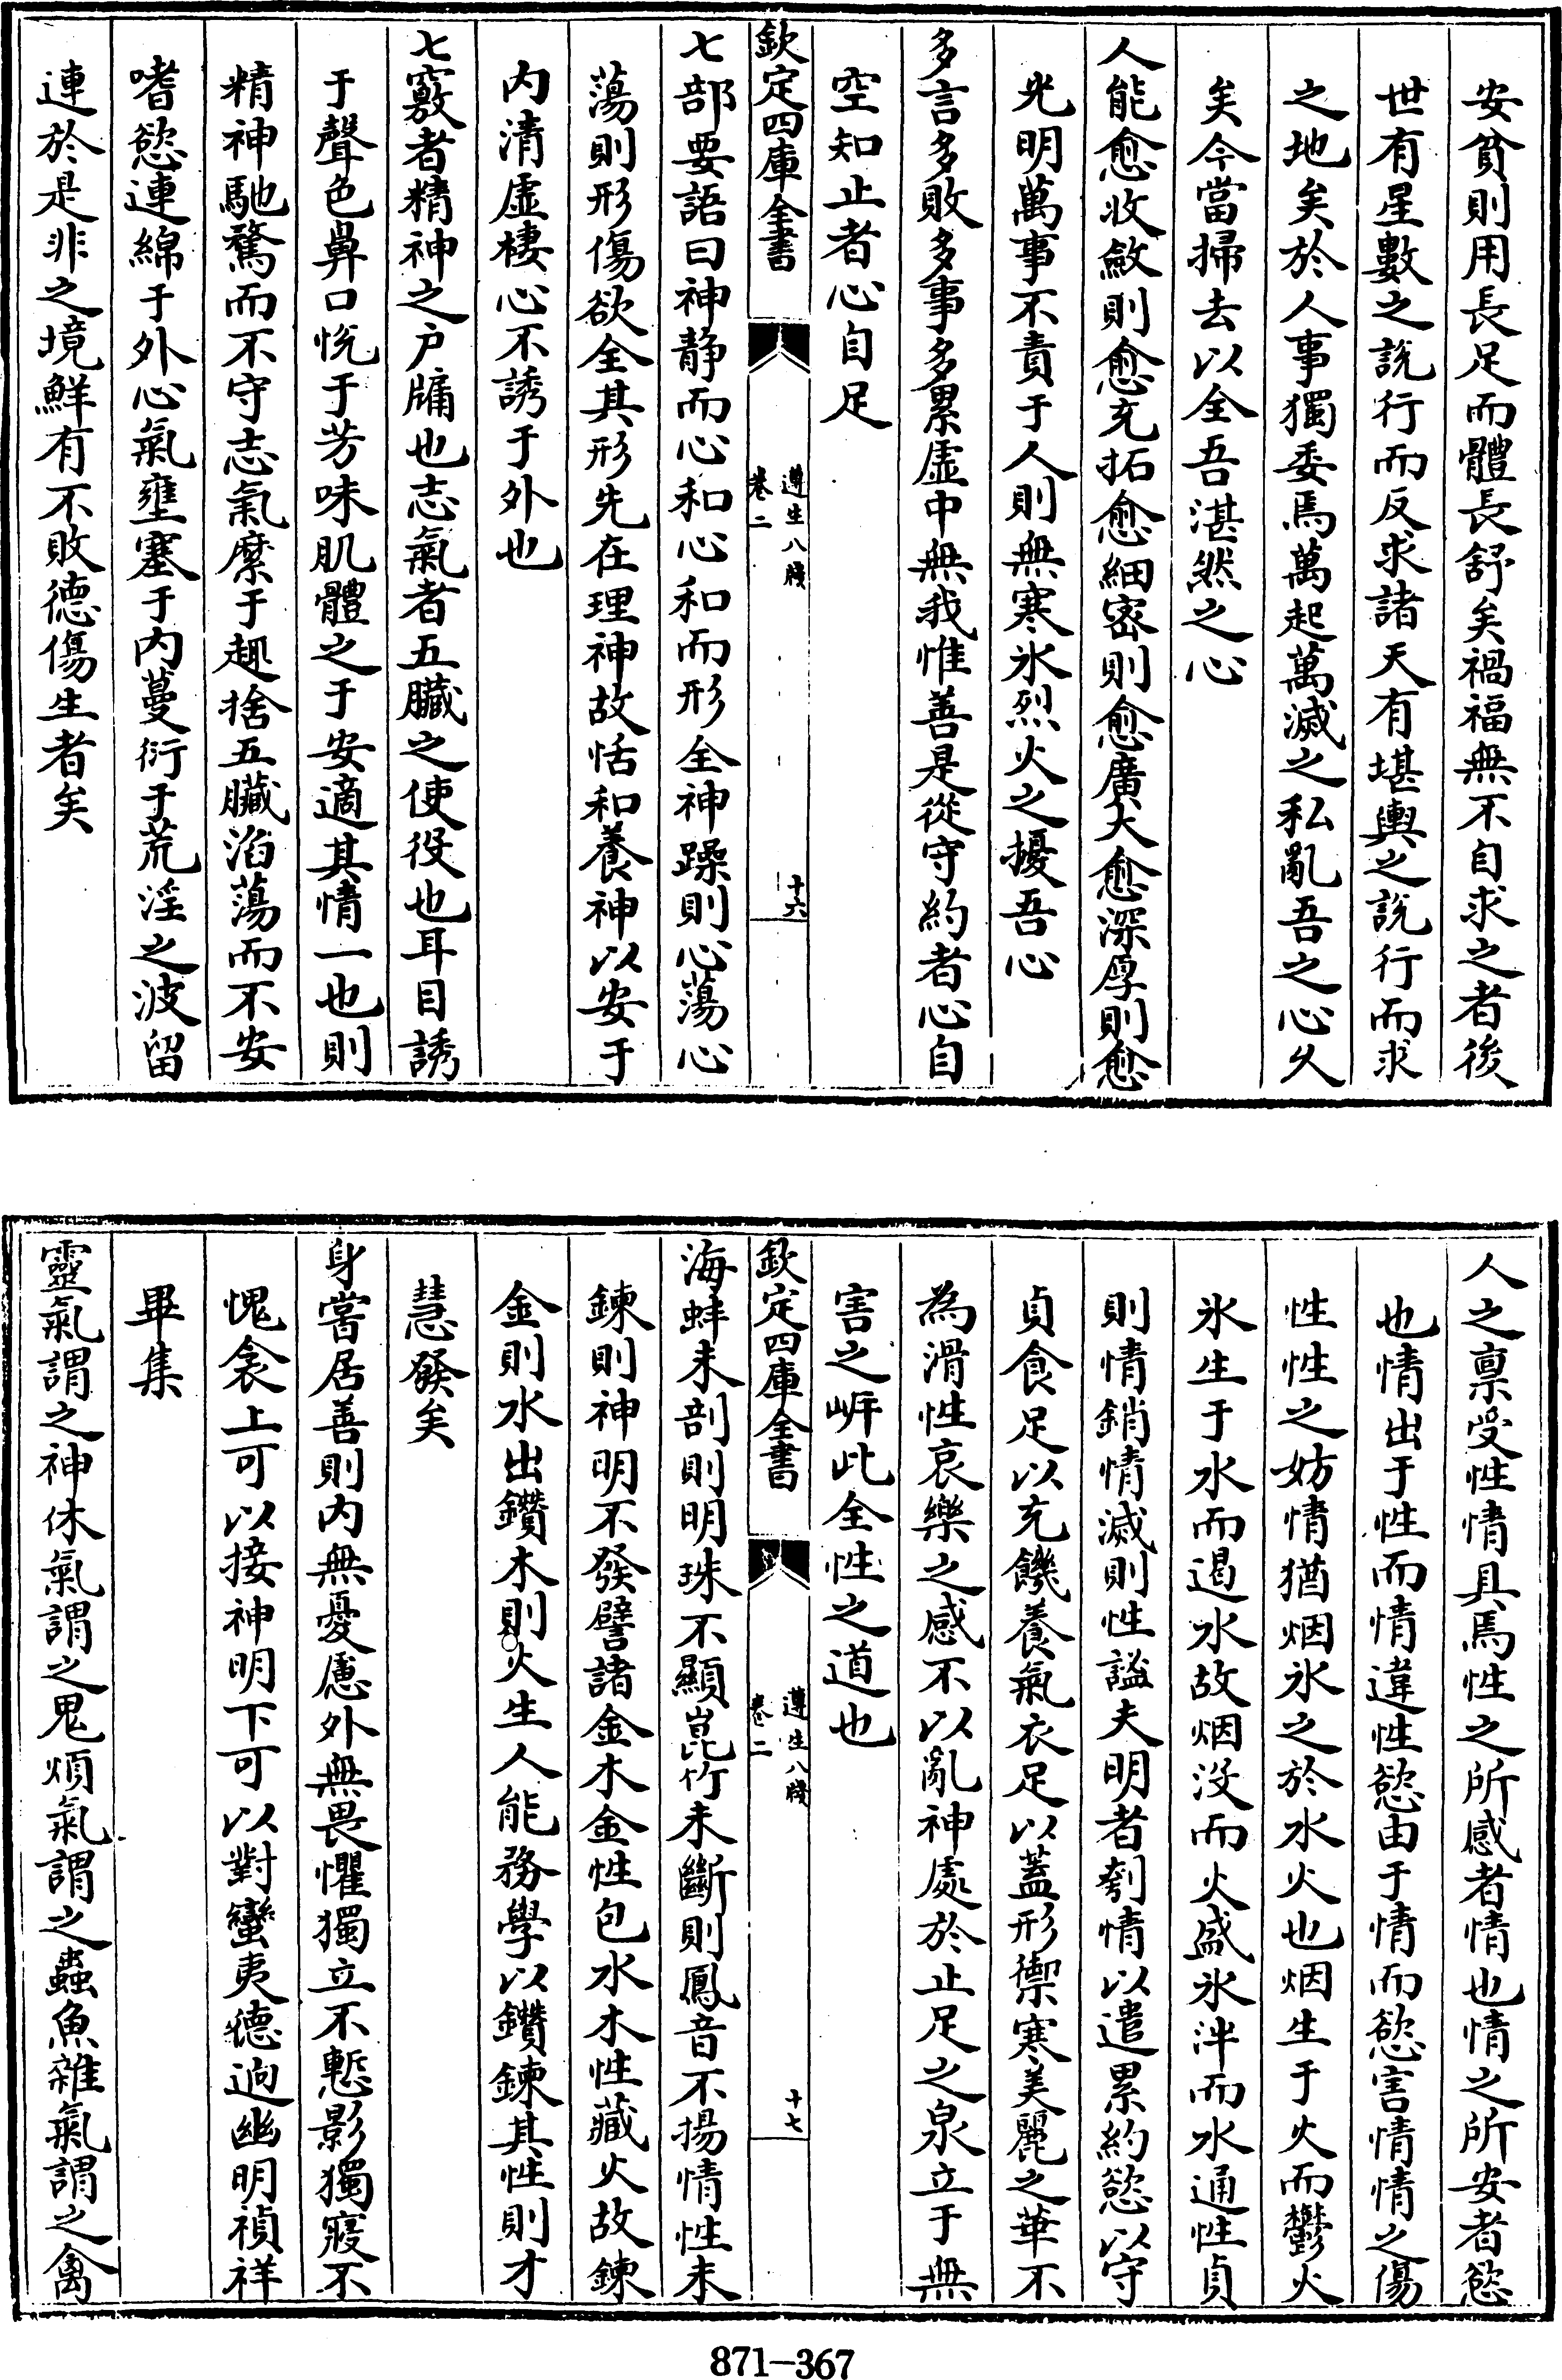 安貧則用長足而體長舒矣禍福無不自求之者後
世有星數之說行而反求諸天有堪輿之說行而求
之地矣於人事獨委焉萬起萬滅之私亂吾之心久
矣今當掃去以全吾湛然之心
人能愈收斂則愈充拓愈細密則愈廣大愈深厚則愈
光明萬事不責于人則無寒氷烈火之擾吾心
多言多敗多事多累虛中無我惟善是從守約者心自
空知止者心自足
欽定四庫全書
遵生八牋
卷二
十六
七部要語曰神靜而心和心和而形全神躁則心蕩心
蕩則形傷欲全其形先在理神故恬和養神以安于
内清虛棲心不誘于外也
七竅者精神之户牖也志氣者五臟之使役也耳目誘
于聲色鼻口恱于芳味肌體之于安適其情一也則
精神馳騖而不守志氣縻于趣捨五臟滔蕩而不安
嗜慾連綿于外心氣壅塞于内蔓衍于荒淫之波留
連於是非之境鮮有不敗德傷生者矣
人之禀受性情具焉性之所感者情也情之所安者慾
也情出于性而情違性慾由于情而慾害情情之傷
性性之妨情猶烟氷之於水火也烟生于火而鬱火
氷生于水而遏水故烟沒而火盛氷泮而水通性貞
則情銷情滅則性謐夫明者刳情以遣累約慾以守
貞食足以充饑養氣衣足以蓋形禦寒美麗之華不
為滑性哀樂之感不以亂神處於止足之泉立于無
害之岍此全性之道也
欽定四庫全書
遵生八牋
卷二
十七
海蚌未剖則明珠不顯崑竹未斷則鳳音不揚情性未
鍊則神明不發譬諸金木金性包水木性藏火故鍊
金則水出鑽木則火生人能務學以鑽鍊其性則才
慧發矣
身嘗居善則内無憂慮外無畏懼獨立不慙影獨寢不
愧衾上可以接神明下可以對蠻夷德逈幽明禎祥
畢集
靈氣謂之神休氣謂之鬼煩氣謂之蟲魚雜氣謂之禽
871-367